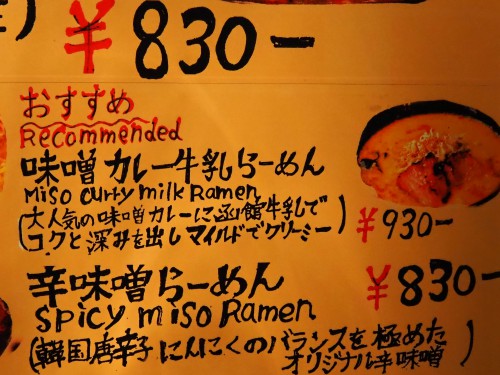 ¥830-
おすすめ
Recommended
味噌カレー牛乳らーめん
Miso Curry Milk Ramen
(大人気の味噌カレーに函館牛乳で
コクと深みを出しマイルドでクリーミー)
¥930-
辛味噌らーめん
¥830-
Spicy miso Ramen
(韓国唐辛子にんにくのバランスを極めた
オリジナル辛味噌)